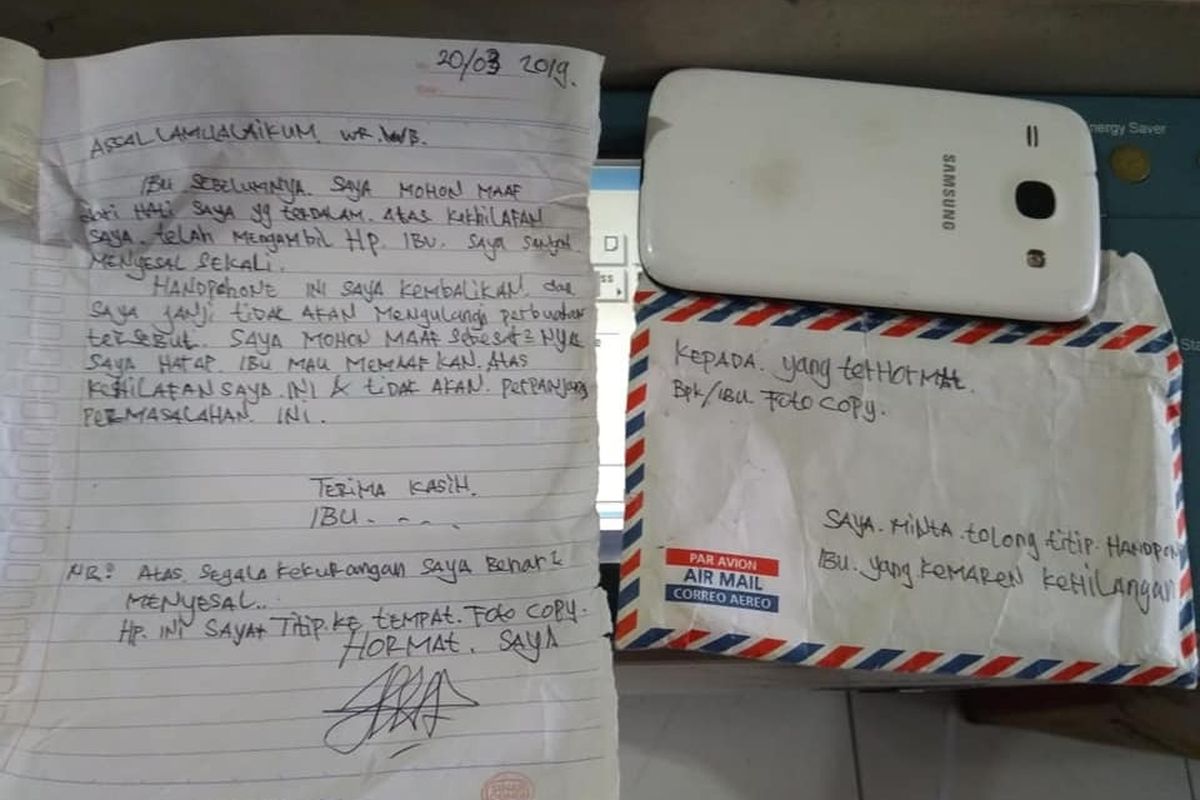 20/03 2019.
ASSALLAMUALAIKUM. WR. WB.
IBU SEBELUMNYA. SAYA MOHON MAAF
dari HATi SAYA yg terdalam. Atas KEKHILAFAN
SAYA. telah MENGAMBIL HP. IBU. SAYA SANgat
MENYESAL SEKALI.
HANDPHONE INI SAYA KEMBALIKAN. dan
SAYA JANJI tiDAK AKAN MENgULANgi PERbuatan
terSEBUT. SAYA MOHON MAAF SebeSAr2 NYA
SAYA HARAP. IBU MAU MEMAAFKAN. Atas
KEHILAFAN SAYA. INI & tiDAK AKAN. perpanjang
PERMASALAHAN. INI.
TERIMA KASIH.
IBU. - - .
NB: Atas. SEgala kekurangan SAYA Benar2
MENYESAL..
HP. INI SAYA Titip. KE TEMPAT. FOTO COPY.
HORMAT. SAYA
SAMSUNG
nergy Saver
KEPADA. yang terHORMAt.
Bpk/IBU. FOTO COPY.
SAYA. MINTA. tolong titip. HANDPON
IBU. yang KEMAREN KEHILANgan
PAR AVION
AIR MAIL
CORREO AEREO